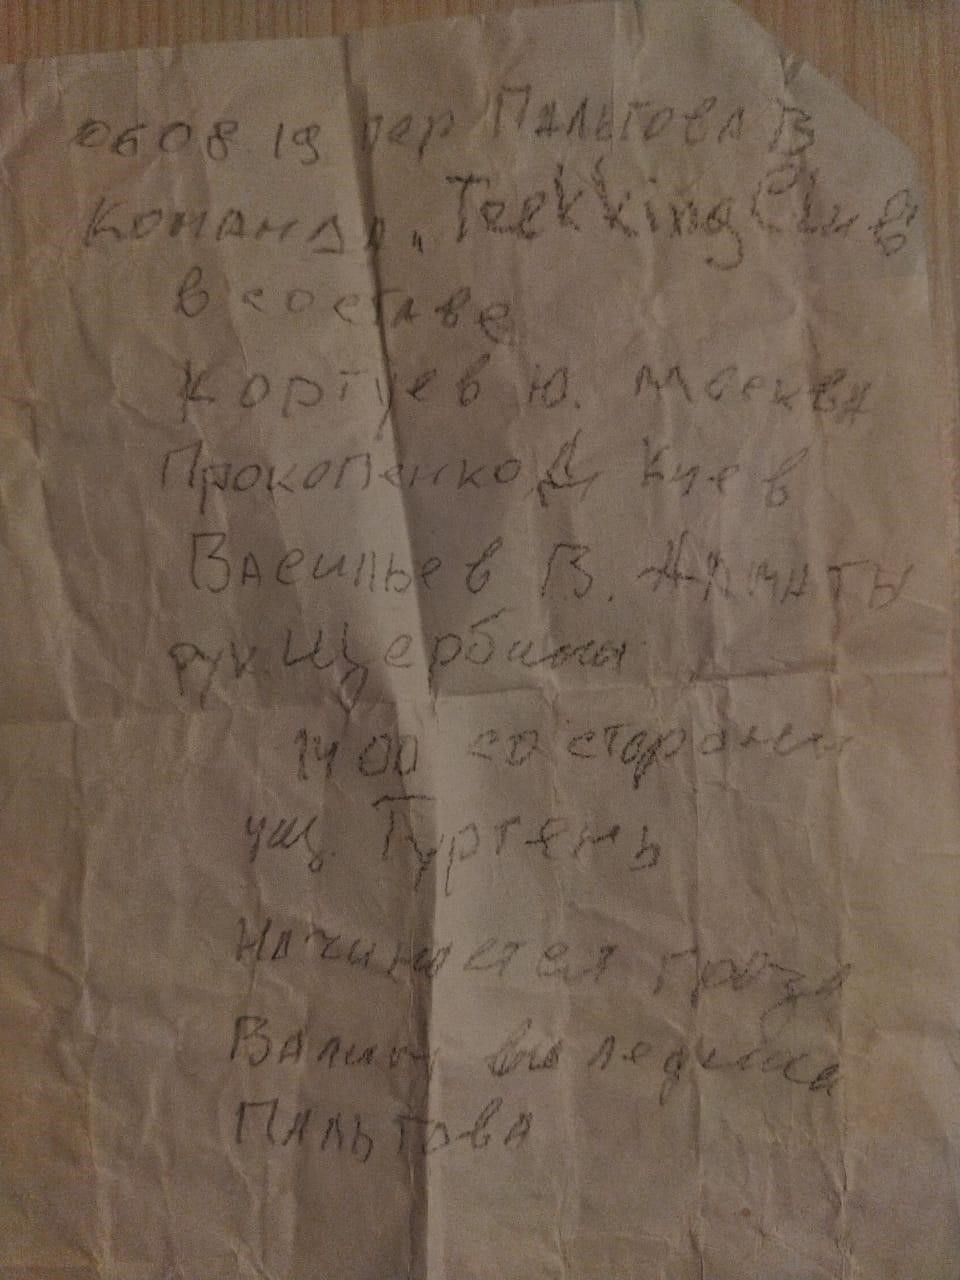 06 08 19 пер Пальгова В
Команда „TrekkingClub
в составе
Коргуев Ю. Москва
Прокопенко Д Киев
Васильев В. Алматы
рук. Щербины
1400 со стороны
ущ. Тургень
Начинается гроза
Валим вш ледника
Пальгова